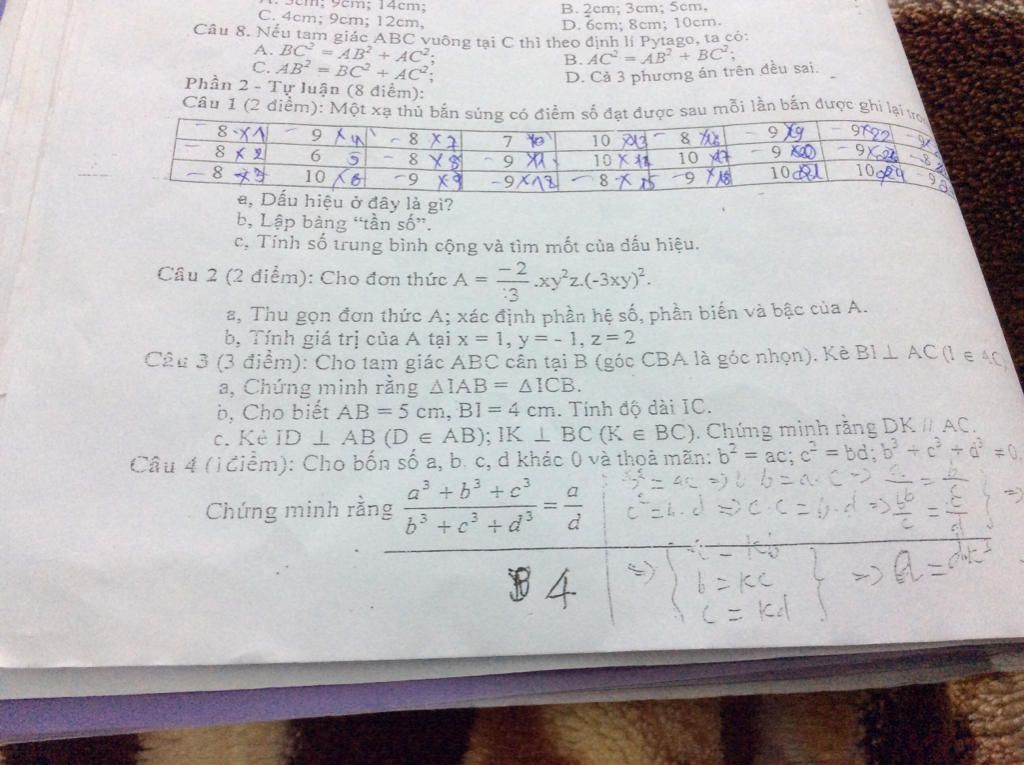 A. 3cm; 9cm; 14cm;
B. 2cm; 3cm; 5cm,
C. 4cm; 9cm; 12cm,
D. 6cm; 8cm; 10cm.
Câu 8. Nếu tam giác ABC vuông tại C thì theo định lí Pytago, ta có:
A. BC² = AB² + AC²;
B. AC² = AB² + BC²;
C. AB² = BC² + AC²;
D. Cả 3 phương án trên đều sai.
Phần 2 - Tự luận (8 điểm):
Câu 1 (2 điểm): Một xạ thủ bắn súng có điểm số đạt được sau mỗi lần bắn được ghi lại
8 x1 9 x4 8 x7 7 10 10 x13 8 9 x9 9 x22
8 x2 6 5 8 x8 9 x11 10 x14 10 x17 9 x20 9
8 x3 10 x6 9 x9 9 x12 8 x 15 9 x18 10 21 10 24 9
a, Dấu hiệu ở đây là gì?
b, Lập bảng “tần số”.
c, Tính số trung bình cộng và tìm mốt của dấu hiệu.
Câu 2 (2 điểm): Cho đơn thức A = -2/3 .xy²z.(-3xy)².
a, Thu gọn đơn thức A; xác định phần hệ số, phần biến và bậc của A.
b, Tính giá trị của A tại x = 1, y = - 1, z = 2
Câu 3 (3 điểm): Cho tam giác ABC cân tại B (góc CBA là góc nhọn). Kẻ BI ⊥ AC (I ∈ AC)
a, Chứng minh rằng △IAB = △ICB.
b, Cho biết AB = 5 cm, BI = 4 cm. Tính độ dài IC.
c. Kẻ ID ⊥ AB (D ∈ AB); IK ⊥ BC (K ∈ BC). Chứng minh rằng DK // AC.
Câu 4 (1điểm): Cho bốn số a, b, c, d khác 0 và thoả mãn: b² = ac; c² = bd; b³ + c³ + d³ ≠ 0.
Chứng minh rằng (a³ + b³ + c³)/(b³ + c³ + d³) = a/d
b² = ac => b.b = a.c => a/b = b/c
c² = b.d => c.c = b.d => b/c = c/d
=> a = kb
b = kc => a = dk³
c = kd
B 4